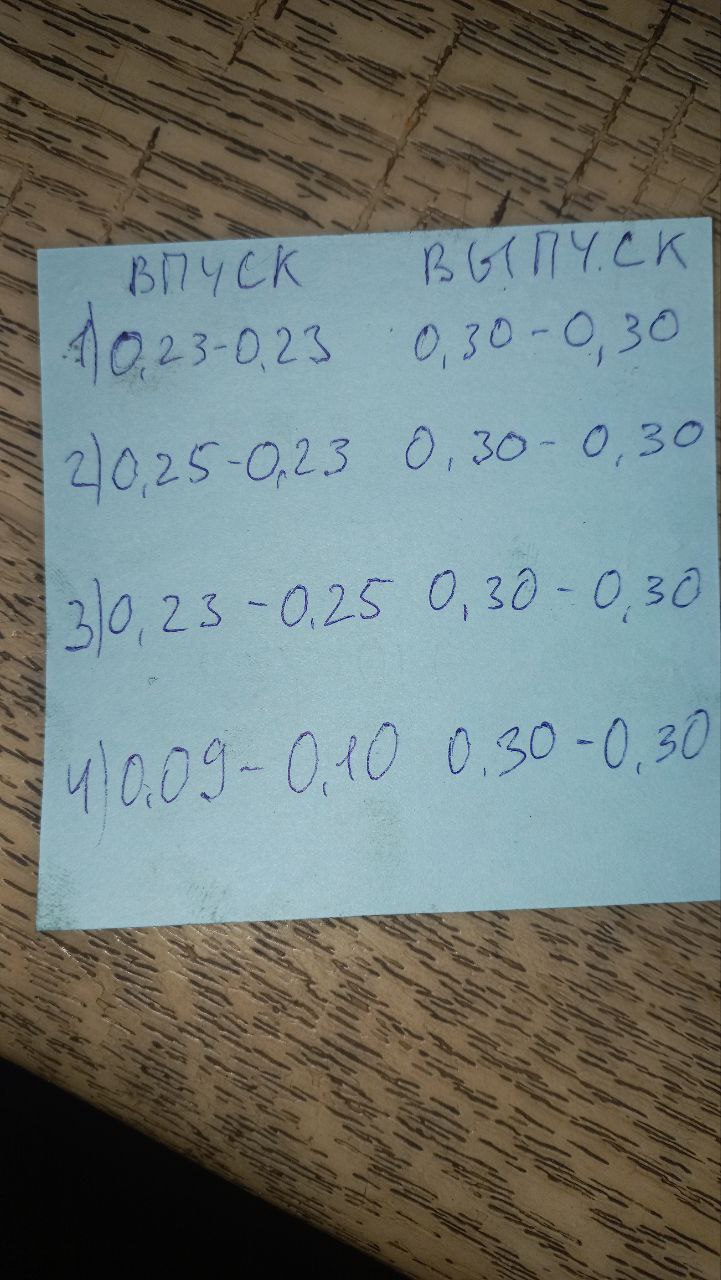 ВПУСК ВЫПУСК
1) 0,23-0,23 0,30-0,30
2) 0,25-0,23 0,30- 0,30
3) 0,23 -0,25 0,30 - 0,30
4) 0,09- 0,10 0,30 -0,30